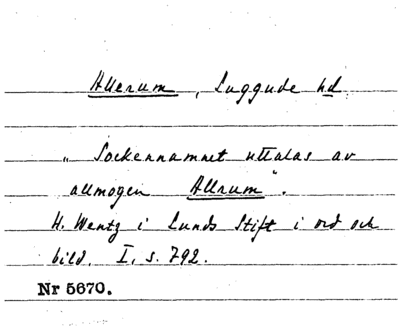 Allerum, Luggude hd
„Sockennamnet uttalas av
allmogen Allrum".
H. Wentz i Lunds Stift i ord och
bild. I, s. 792.
Nr 5670.